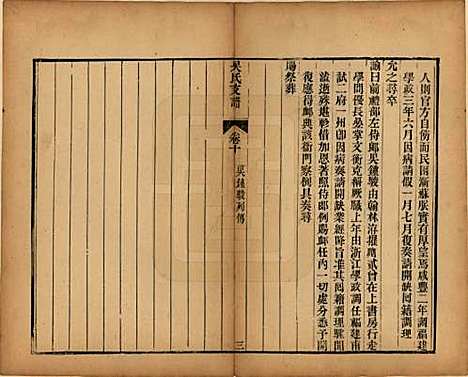 人則官方自傍而民困漸蘇朕實有厚望焉咸豐二年調福建
學政三年六月因病請假一月七月復奏請開缺回籍調理
允之尋卒
諭曰前禮部左侍郎吳鍾駿由翰林洊擢貳曾在上書房行走
學問優長屢掌文衡克稱厥職上年由浙江學政調任福建甫
試二府一州卽因病奏請開缺業經降旨准其回籍調理茲
溘逝殊堪軫惜加恩著照侍郎例賜卹任內一切處分悉予開
復應得卹典該衙門察例具奏尋
賜祭葬
吳氏支譜
卷十
吳鍾駿列傳
三